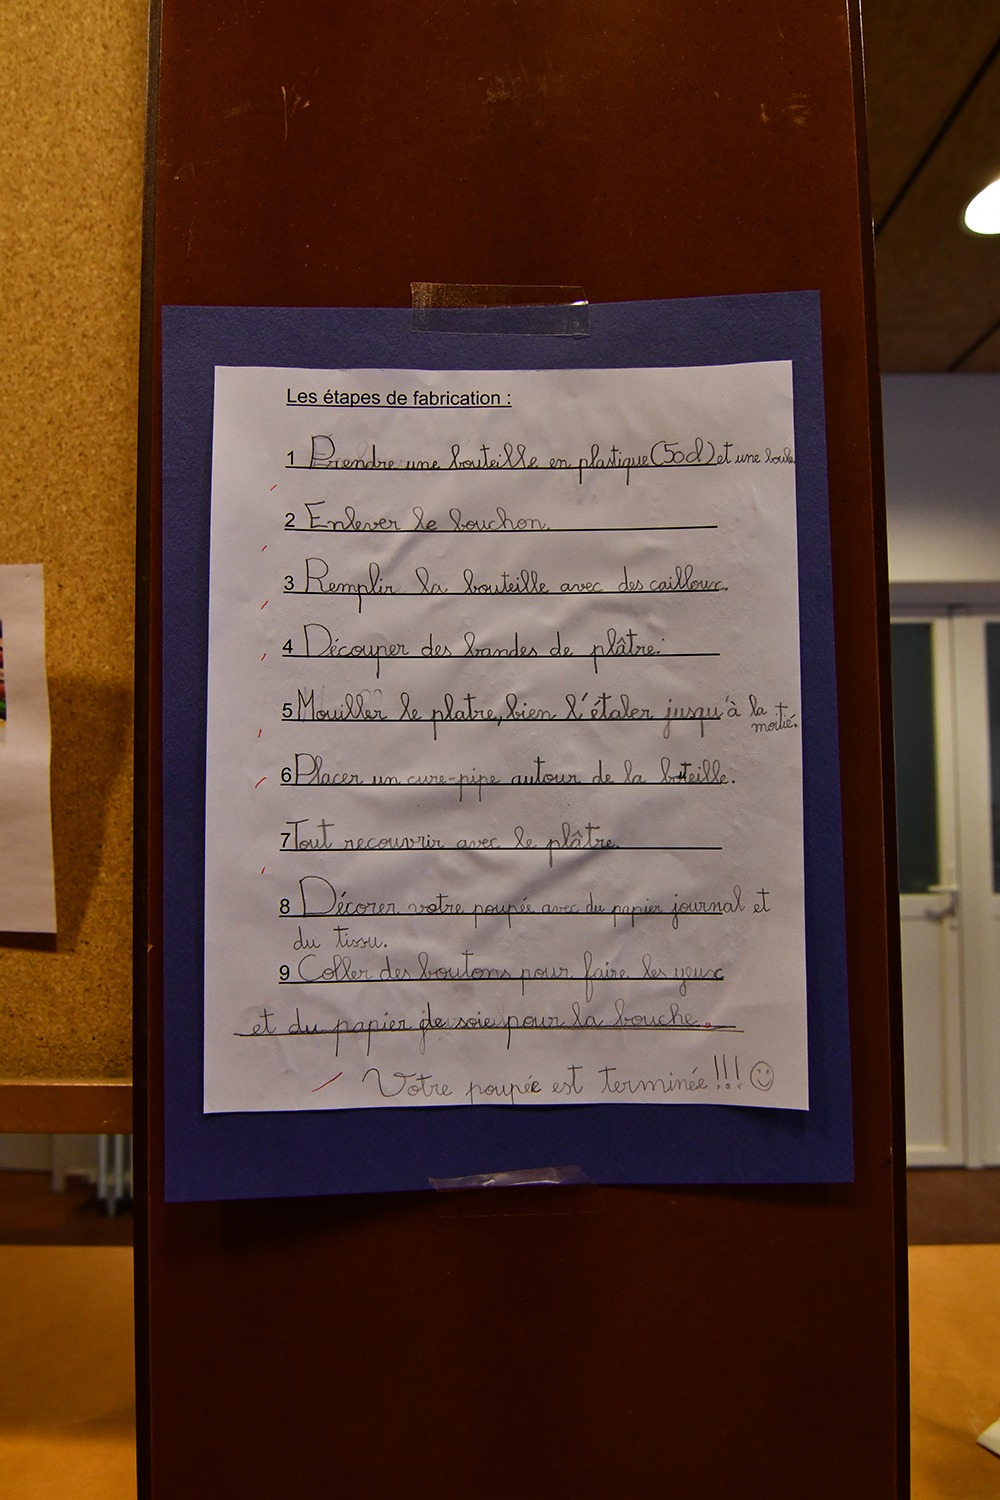 Les étapes de fabrication :
1 Prendre une bouteille en plastique (50cl) et une boule
2 Enlever le bouchon.
3 Remplir la bouteille avec des cailloux.
4 Découper des bandes de plâtre.
5 Mouiller le platre, bien l'étaler jusqu'à la
moitié.
6 Placer un cure-pipe autour de la boteille.
7 Tout recouvrir avec le plâtre.
8 Décorer votre poupée avec du papier journal et
du tissu.
9 Coller des boutons pour faire les yeux
et du papier de soie pour la bouche.
Votre poupée est terminée !!!